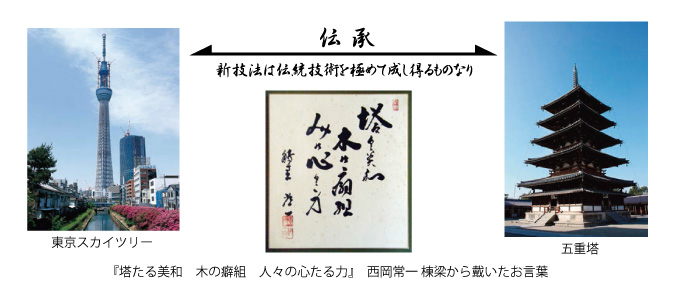 伝承
新技法は伝統技術を極めて成し得るものなり
塔 美和
木 癖組
心 力
東京スカイツリー
五重塔
『塔たる美和　木の癖組　人々の心たる力』　西岡常一 棟梁から戴いたお言葉